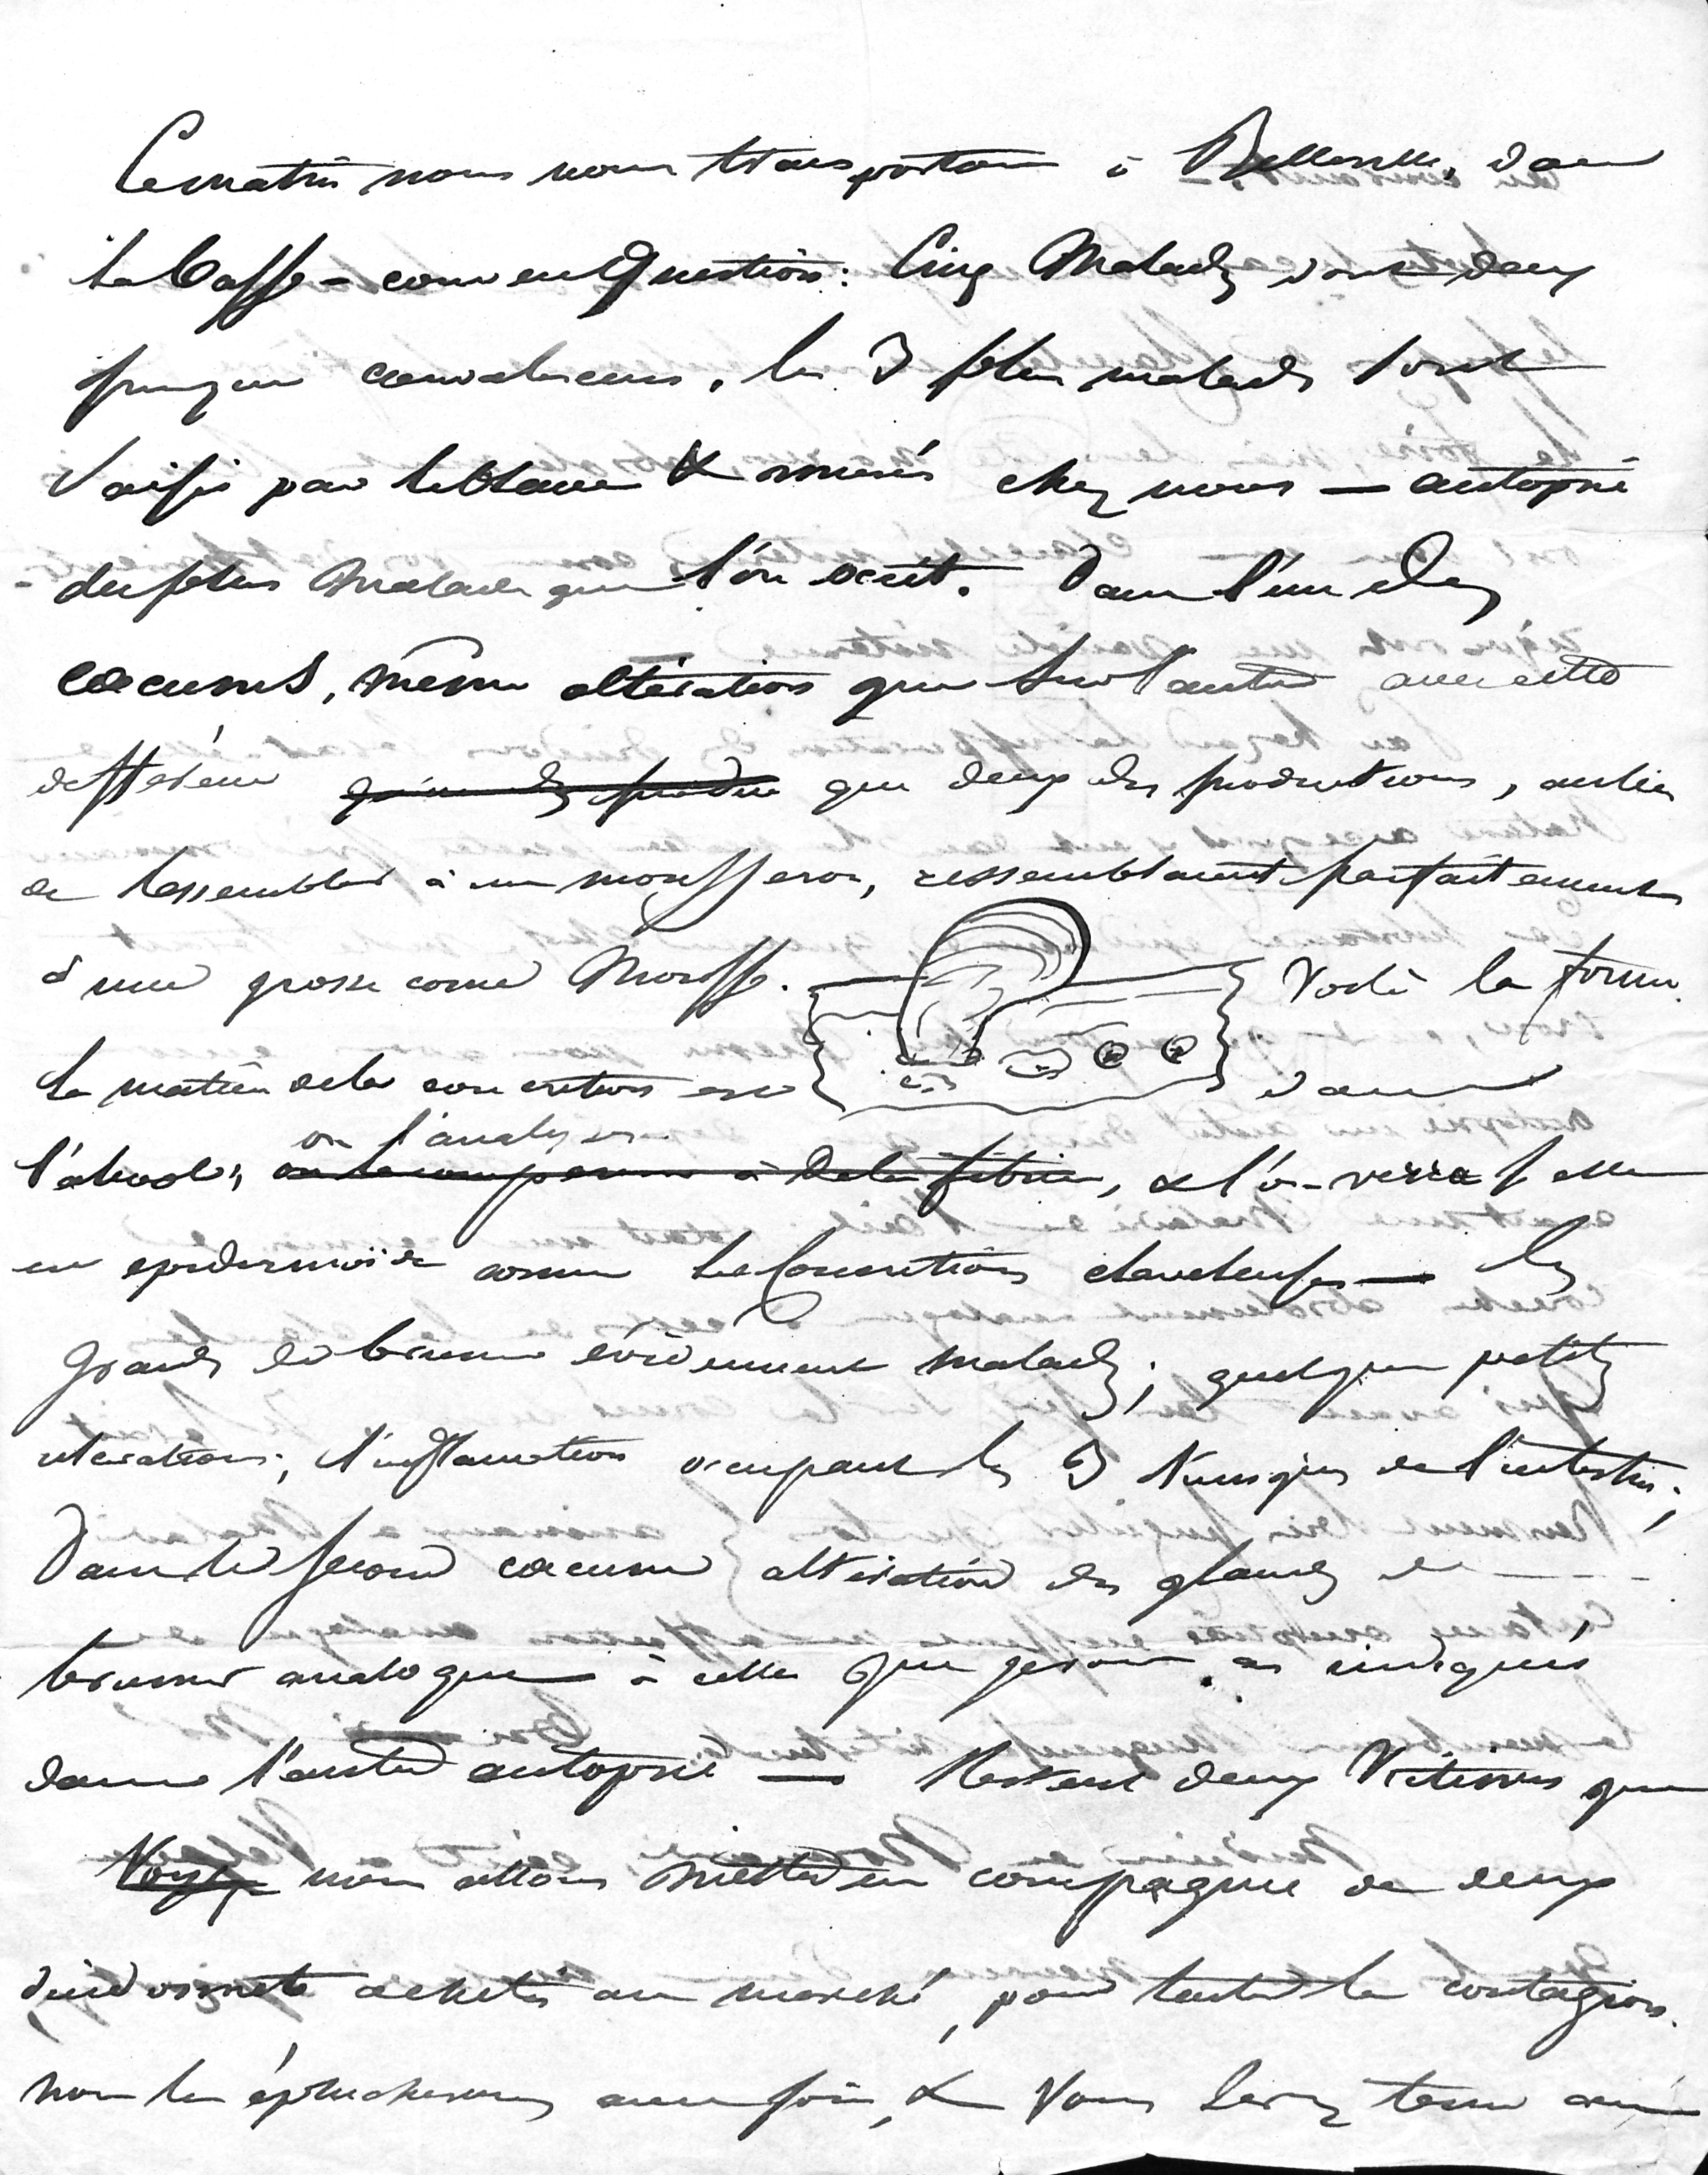 Ce matin nous nous transportons à Belleville, dans
la basse-cour en question : Cinq malades dont deux
presque convalescens. les 3 plus malades sont
saisis par Leblanc & amenés chez nous — autopsie
du plus malade que l'on occit. Dans l'un des
coecums, même altération que sur l'autre avec cette
différence que deux des productions, au lieu
de ressembler à un mousseron, ressemblaient parfaitement
à une grosse corne Voilà la forme
la matière de la concrétion est dans
l'alcool ; on l'analysera, & l'on verra si elle
est epidermoïde comme les concrétions claveleuses — les
glandes de brunner évidemment malades ; quelques petites
ulcérations ; l'inflamation occupant les 3 tuniques de l'intestin ;
Dans le second coecum altération des glandes de
brunner analogue à celle que je vous ai indiquée
dans l'autre autopsie — Restent deux victimes que
nous allons mettre en compagnie de deux
dindonneaux achetés au marché, pour tenter la contagion.
nous les éplucherons avec soin, & vous serez tenu au